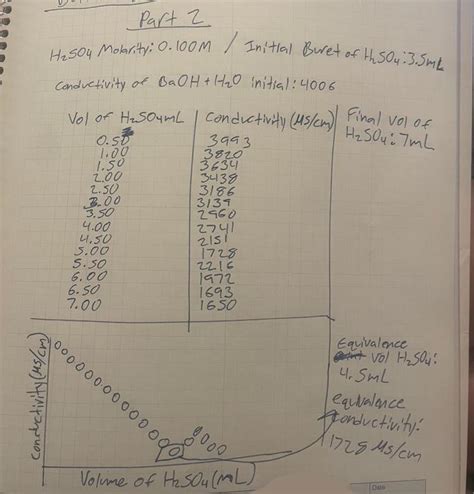 Part 2
H2SO4 Molarity: 0.100M / Initial Buret of H2SO4: 3.5mL
Conductivity of BaOH + H2O initial: 4006
Vol of H2SO4 mL | Conductivity (µs/cm) | Final vol of H2SO4: 7mL
0.50 3993
1.00 3820
1.50 3634
2.00 3438
2.50 3186
3.00 3139
3.50 2960
4.00 2741
4.50 2151
5.00 1728
5.50 2216
6.00 1972
6.50 1693
7.00 1650
Conductivity (µs/cm)
Volume of H2SO4 (mL)
Equivalence
vol H2SO4:
4.5mL
equivalence
conductivity:
1728 µs/cm
Date